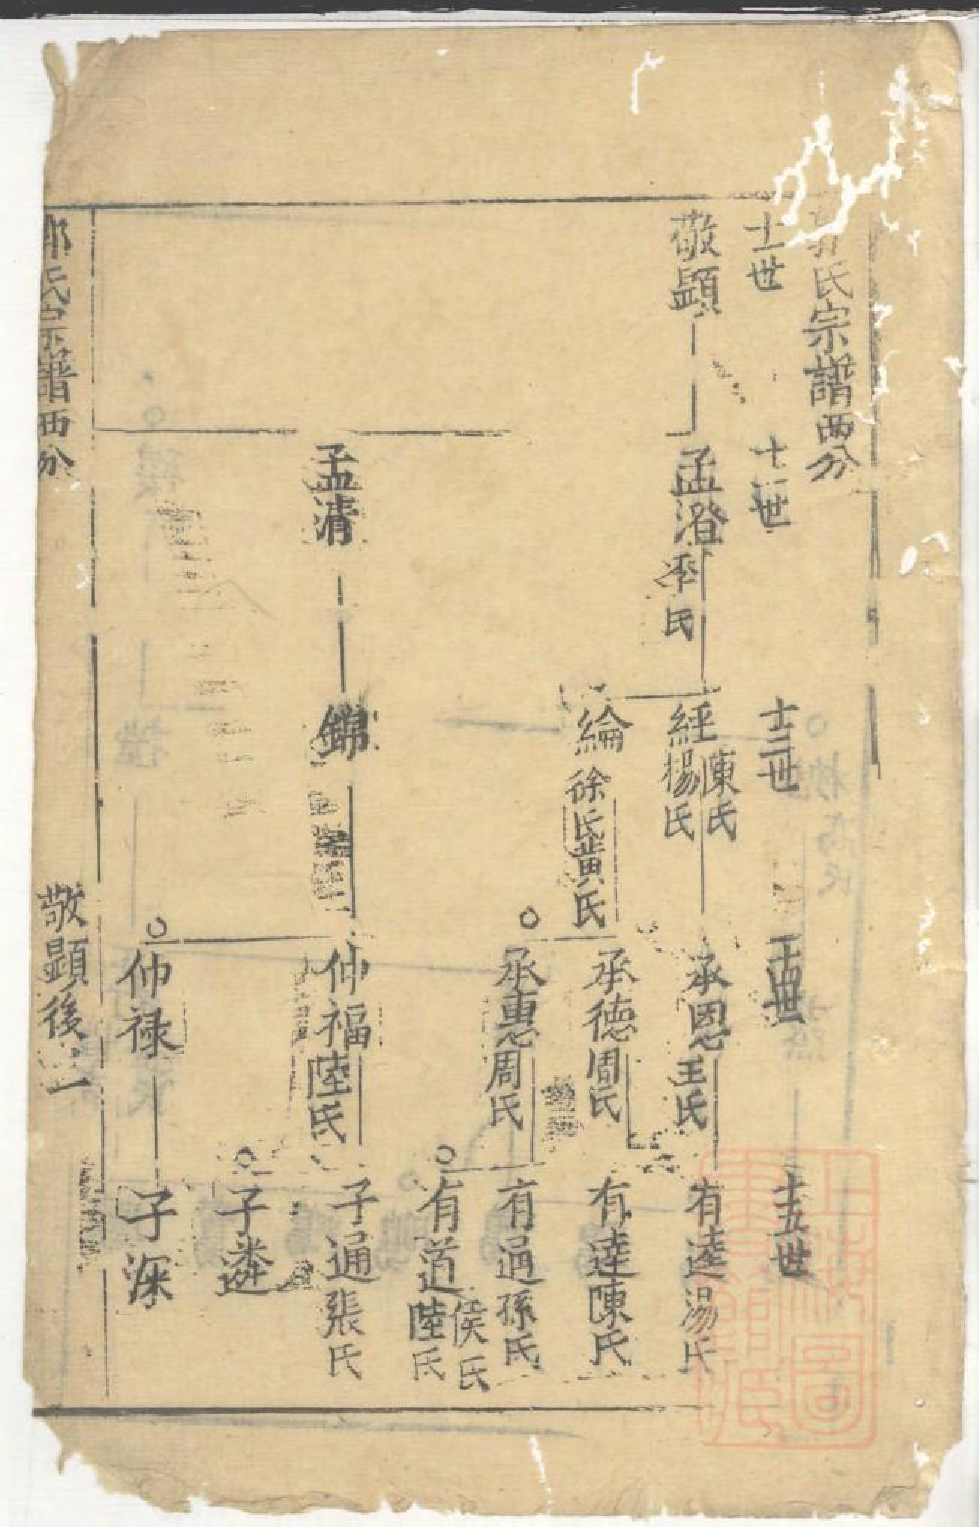 氏宗譜西分
十一世
敬顯
十二世
孟澄 季氏
孟清
十三世
經 陳氏 楊氏
綸 徐氏 黃氏
錦
十四世
承恩 王氏
承德 周氏
承惠 周氏
仲福 陸氏
仲祿
十五世
有逵 湯氏
有達 陳氏
有适 孫氏
有道 侯氏 陸氏
子通 張氏
子遴
子深
氏宗譜西分
敬顯後